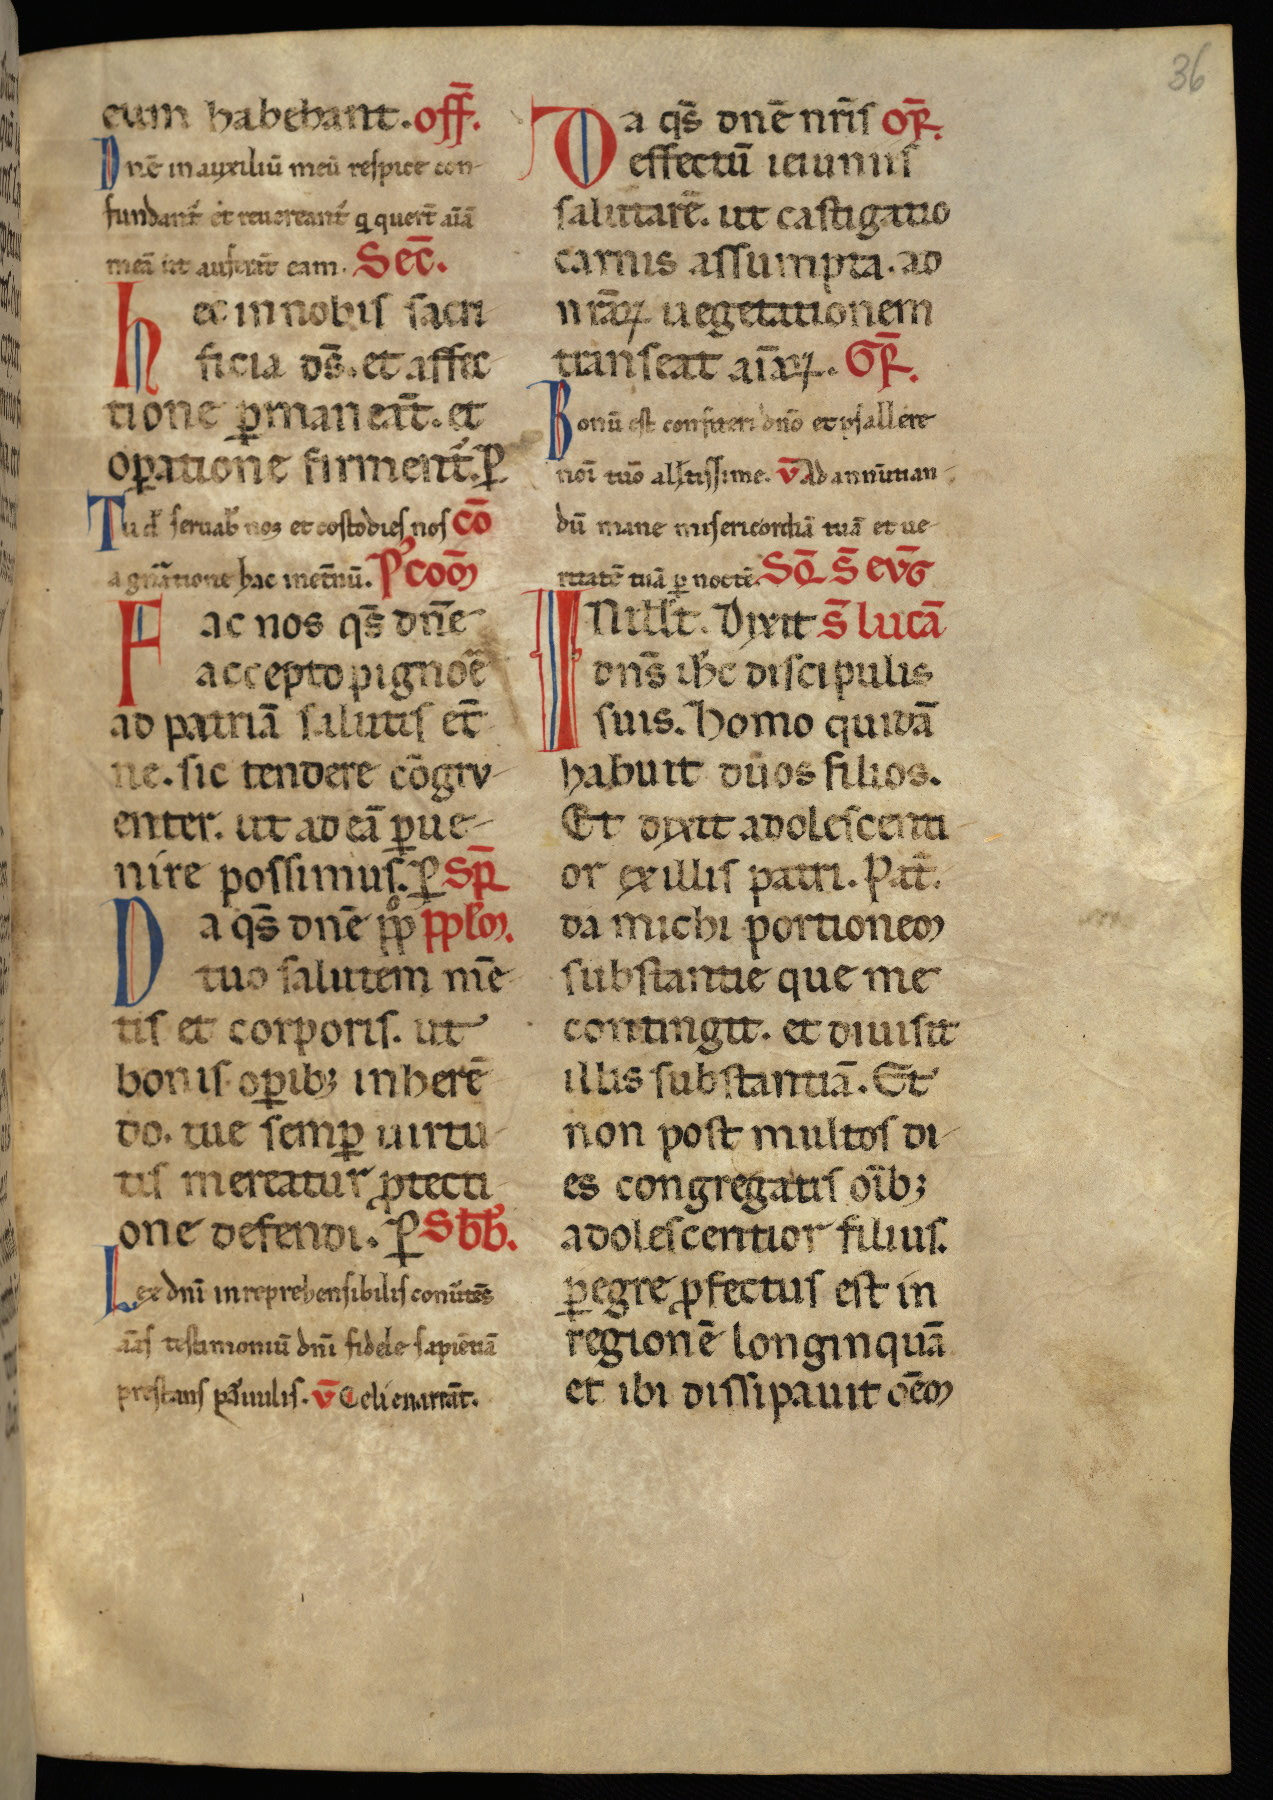 36
eum habebant. off̄.
Dnē in auxiliū meū respice con-
fundant̄ et reuereant̄ q̄ quert̄ aīā
meā ut auferāt eam. Sec̄.
hec in nobis sacri
ficia ds̄. et affec
tione ꝑmaneāt. et
oꝑatione firment̄. ꝑ
Tu d̄ seruab nos et costodies nos cō
a gnātione hac inet̄nū. P'coō
Fac nos qs̄ dnē
accepto pignoē
ad patriā salutis et̄
ne. sic tendere cōgru
enter. ut ad eā ꝑue-
nire possimus. ꝑ Sp̄
Da qs̄ dnē ppo pplm.
tuo salutem mē
tis et corporis. ut
bonis oꝑibꝫ inherē
do. tue semꝑ uirtu
tis mereatur ꝓtecti
one defendi. ꝑ Sbb.
Lex dnī inreprehensibilis conūtēs
aīas testimoniū dnī fidele sapiētiā
prestans paruulis. v̄ Celi enarrāt.
Da qs̄ dnē nrīs or̄.
effectū ieiuniis
salutarē. ut castigatio
carnis assumpta. ad
nrāꝝ uegetationem
transeat aīaꝝ. Gr̄.
Bonū est confiteri dnō et psallere
noī tuō altissime. v̄ Ad annūtian
dū mane misericordiā tuā et ue-
ritatē tuā ꝑ noctē. Sq̄ s̄ evḡ
In illt. Dixit s̄ lucā
dns̄ ihc discipulis
suis. Homo quidā
habuit duos filios.
Et dixit adolescenti
or ex illis patri. Pat̄.
da michi portionem
substantie que me
contingit. et diuisit
illis substantiā. Et
non post multos di-
es congregatis oībꝫ
adolescentior filius.
ꝑegre ꝓfectus est in
regionē longinquā
et ibi dissipauit oēm